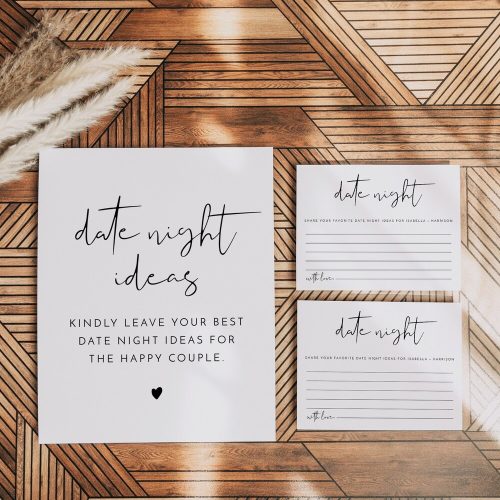 date night
ideas
KINDLY LEAVE YOUR BEST
DATE NIGHT IDEAS FOR
THE HAPPY COUPLE.
date night
SHARE YOUR FAVORITE DATE NIGHT IDEAS FOR ISABELLA + HARRISON
with love,
date night
SHARE YOUR FAVORITE DATE NIGHT IDEAS FOR ISABELLA + HARRISON
with love,